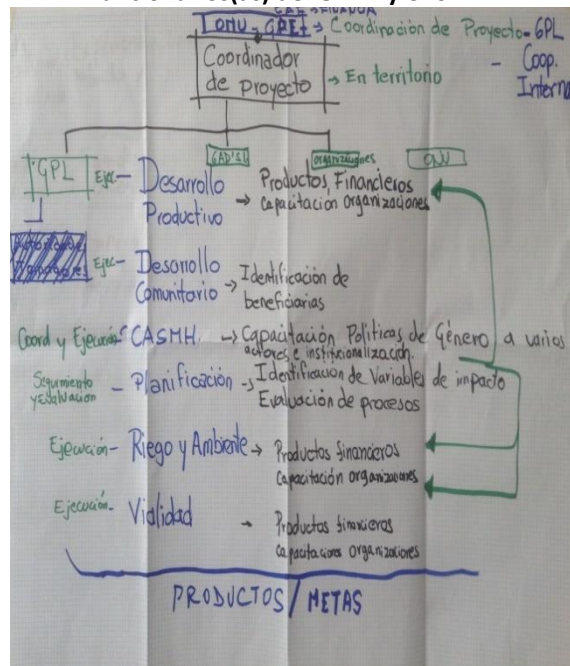 ONU - GPE → Coordinación de Proyecto - GPL
- Coop.
Interna
Coordinador
de proyecto → En territorio
GPL
GAD'S
organizaciones
ONU
Ejec - Desarrollo
Productivo → Productos, Financieros
Capacitación organizaciones
Ejec - Desarrollo
Comunitario → Identificación de
beneficiarias
Coord y Ejecución - CASMH → Capacitación Políticas de Género a varios
actores e institucionalización.
Seguimiento
y Evaluación - Planificación → Identificación de Variables de impacto
Evaluación de procesos
Ejecución - Riego y Ambiente → Productos financieros
Capacitación organizaciones
Ejecución - Vialidad → Productos financieros
capacitaciones organizaciones
PRODUCTOS / METAS